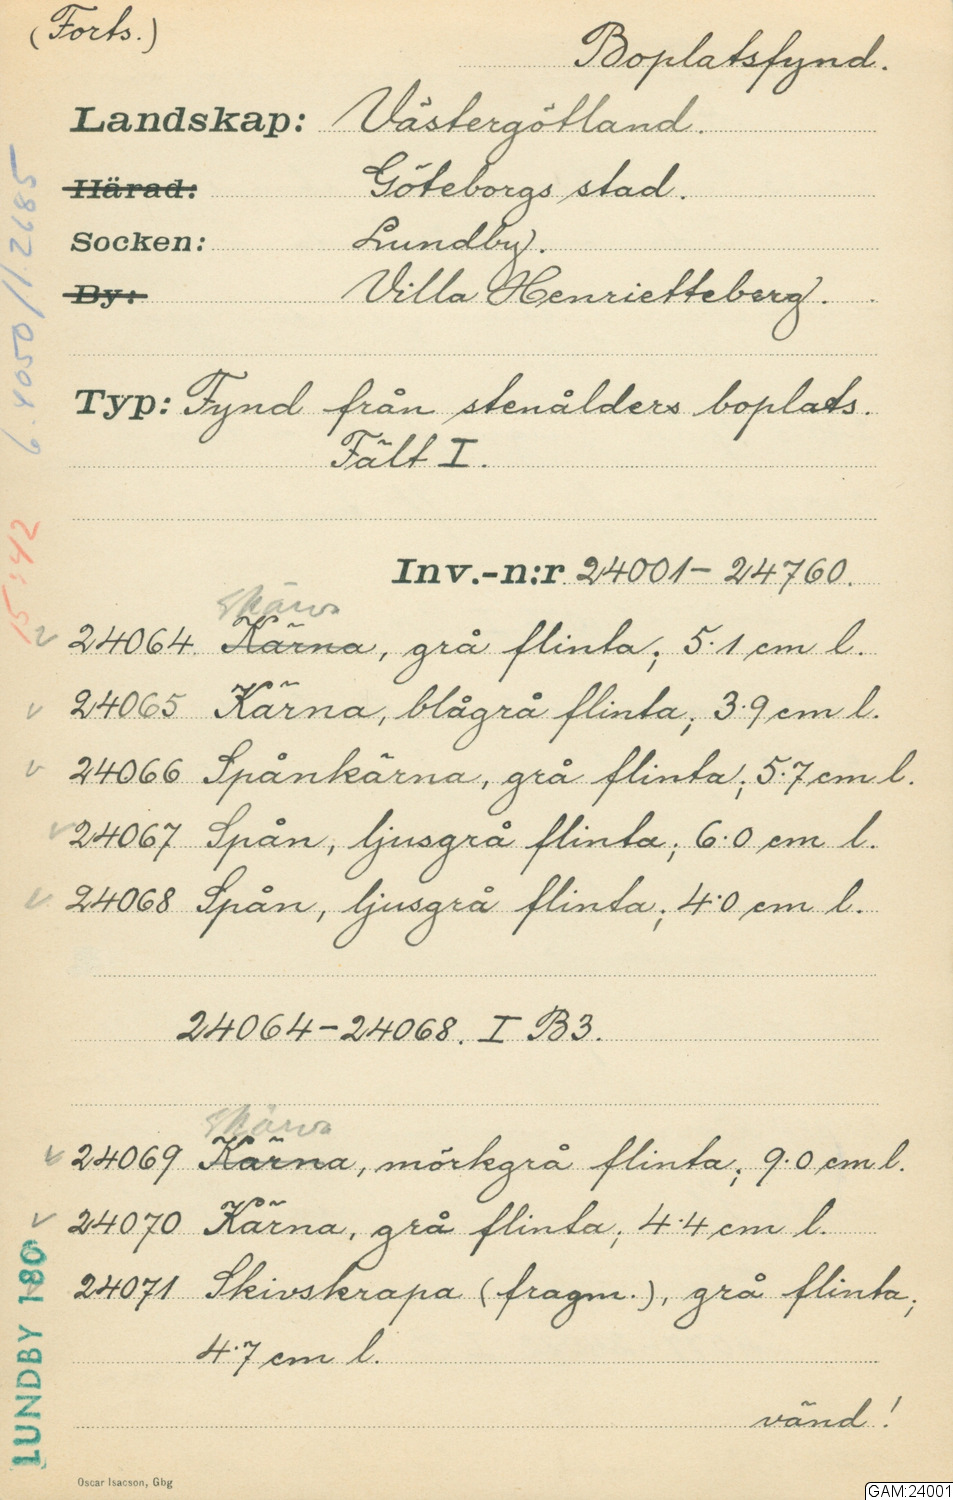 (Forts.)
Boplatsfynd.
Landskap: Västergötland.
Härad: Göteborgs stad.
Socken: Lundby.
By: Villa Henrietteberg.
Typ: Fynd från stenålders boplats.
Fält I.
Inv.-n:r 24001–24760.
Skärva
v 24064. Kärna, grå flinta; 5.1 cm l.
v 24065 Kärna, blågrå flinta; 3.9 cm l.
v 24066 Spånkärna, grå flinta; 5.7 cm l.
v 24067 Spån, ljusgrå flinta; 6.0 cm l.
v 24068 Spån, ljusgrå flinta; 4.0 cm l.
24064–24068. I B3.
Skärva
v 24069 Kärna, mörkgrå flinta; 9.0 cm l.
v 24070 Kärna, grå flinta; 4.4 cm l.
24071 Skivskrapa (fragm.), grå flinta;
4.7 cm l.
vänd!
Oscar Isacson, Gbg
GAM:24001
15:42
LUNDBY 180